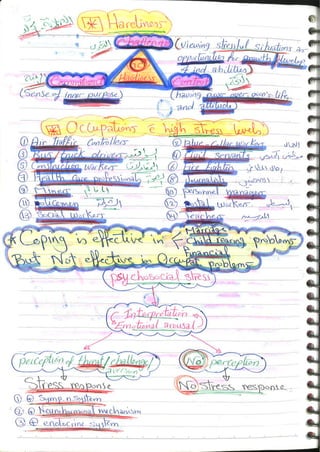 * Hardiness
Challenge
(viewing stressful situations as
opportunities for growth / develop
of ind. abilities)
Hardiness
Commitment
Control
(Sense of inner purpose)
(having power over one's life
and attitude)
* Occupations c high stress level:
① Air traffic controllers
② Blue-collar workers
③ Bus/truck drivers
④ Civil servants
⑤ Construction workers
⑥ Fire fighters
⑦ Health care professionals
⑧ Journalists
⑨ Miners
⑩ personnel managers
⑪ policemen
⑫ Postal workers
⑬ Social workers
⑭ Teachers
* Coping is effective in
Marriage
Child rearing problems
Financial
But Not effective in Occupat. problems
psychosocial stress
Interpretation
Emotional arousal
perception of threat/challenge/
No perception
Stress response
No stress response
① ⊕ Symp. n. system
② ⊕ Neurohumoral mechanism
③ ⊕ endocrine system